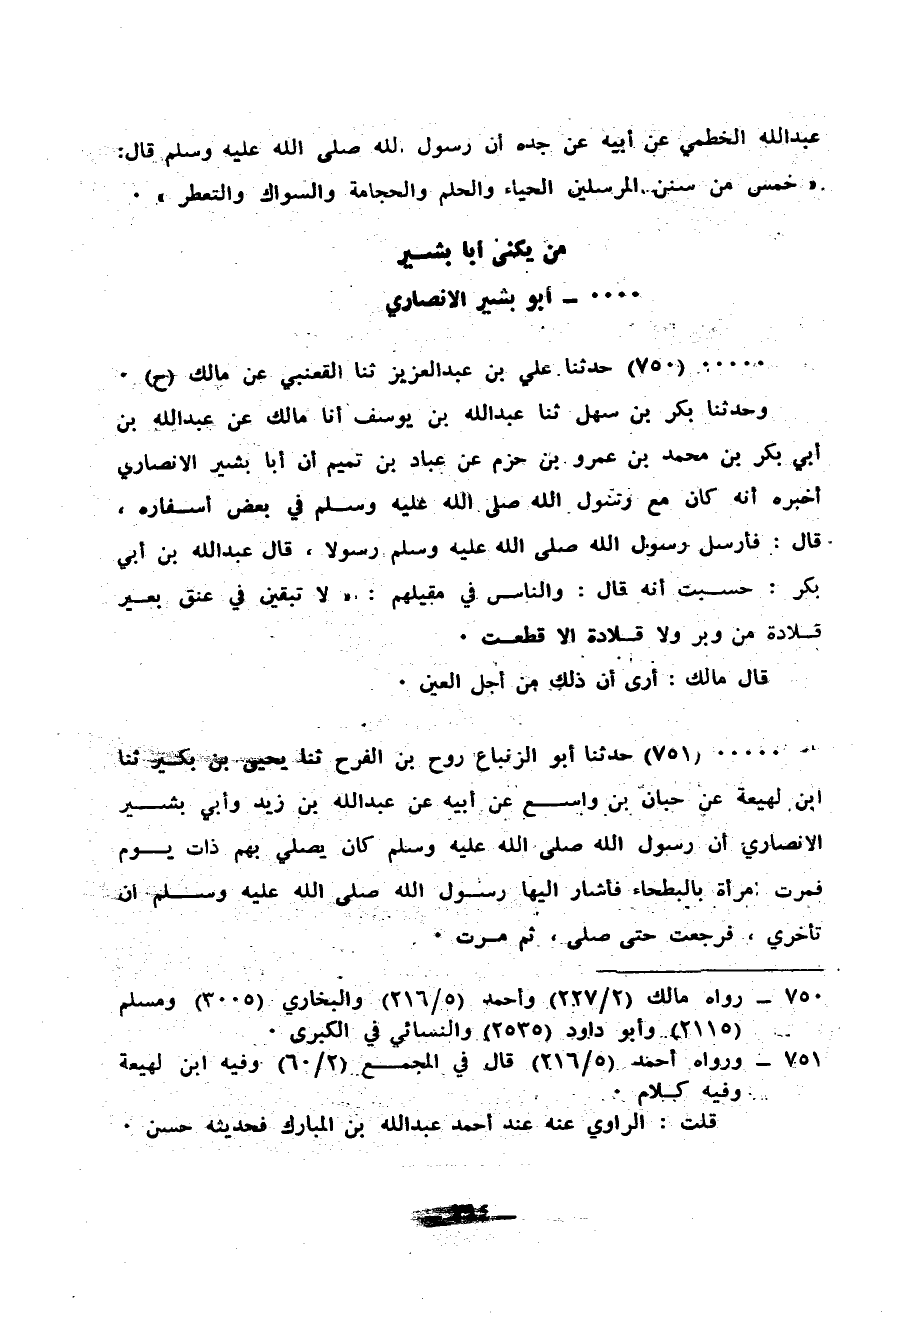 عبدالله الخطمي عن أبيه عن جده أن رسول الله صلى الله عليه وسلم قال:
« خمس من سنن المرسلين الحياء والحلم والحجامة والسواك والتعطر » ٠
من يكنى أبا بشــير
٠٠٠٠ ــ أبو بشير الانصاري
٠٠٠٠٠ (٧٥٠) حدثنا علي بن عبدالعزيز ثنا القعنبي عن مالك (ح) ٠
وحدثنا بكر بن سهل ثنا عبدالله بن يوسف أنا مالك عن عبدالله بن
أبي بكر بن محمد بن عمرو بن حزم عن عباد بن تميم أن أبا بشير الانصاري
أخبره أنه كان مع رسول الله صلى الله عليه وســلم في بعض أســفاره ،
قال : فأرسل رسول الله صلى الله عليه وسلم رسولا ، قال عبدالله بن أبي
بكر : حســبت أنه قال : والناس في مقيلهم : « لا تبقين في عنق بعــير
قــلادة من وبر ولا قــلادة الا قطعــت ٠
قال مالك : أرى أن ذلك من أجل العين ٠
٠٠٠٠٠ (٧٥١) حدثنا أبو الزنباع روح بن الفرح ثنا يحيى بن بكــير ثنا
ابن لهيعة عن حبان بن واســع عن أبيه عن عبدالله بن زيد وأبي بشــير
الانصاري أن رسول الله صلى الله عليه وسلم كان يصلي بهم ذات يــوم
فمرت امرأة بالبطحاء فأشار اليها رسول الله صلى الله عليه وســلم ان
تأخري ، فرجعت حتى صلى ، ثم مــرت ٠
٧٥٠ ــ رواه مالك (٢٢٧/٢) وأحمد (٢١٦/٥) والبخاري (٣٠٠٥) ومسلم
(٢١١٥) وأبو داود (٢٥٣٥) والنسائي في الكبرى ٠
٧٥١ ــ ورواه أحمد (٢١٦/٥) قال في المجمــع (٦٠/٢) وفيه ابن لهيعة
وفيه كــلام ٠
قلت : الراوي عنه عند أحمد عبدالله بن المبارك فحديثه حسن ٠